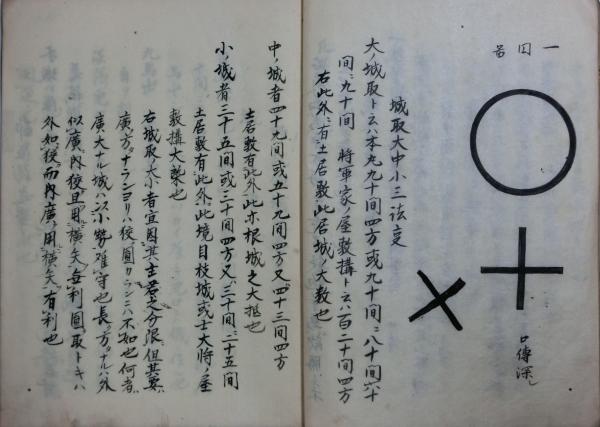 一 因畄
口傳深シ
城取大中小三法㕝
大ノ城取トハ本丸九十間四方或九十間ニ八十間六十
間ニ九十間 將軍家ノ屋敷構トハ百二十間四方
右此外ニ有土居敷此居城ノ大数也
中ノ城者四十九間或五十九間四方又四十三間四方
土居敷有此外此亦根城之大抵也
小ノ城者三十五間或三十間四方又三十間ニ二十五間
土居敷有此外此境目枝城或士大将ノ屋
敷構大槩也
右城取大小者宜因其主君之分限但其要
廣ク方ナランヨリハ狡ク圓カランニハ不如也何者
廣大ナル城ハ以小勢難守也長ク方ナルハ外
似廣内狡且用横矢ヲ無利圓取トキハ
外如狡而内廣ク用横矢ヲ有利也